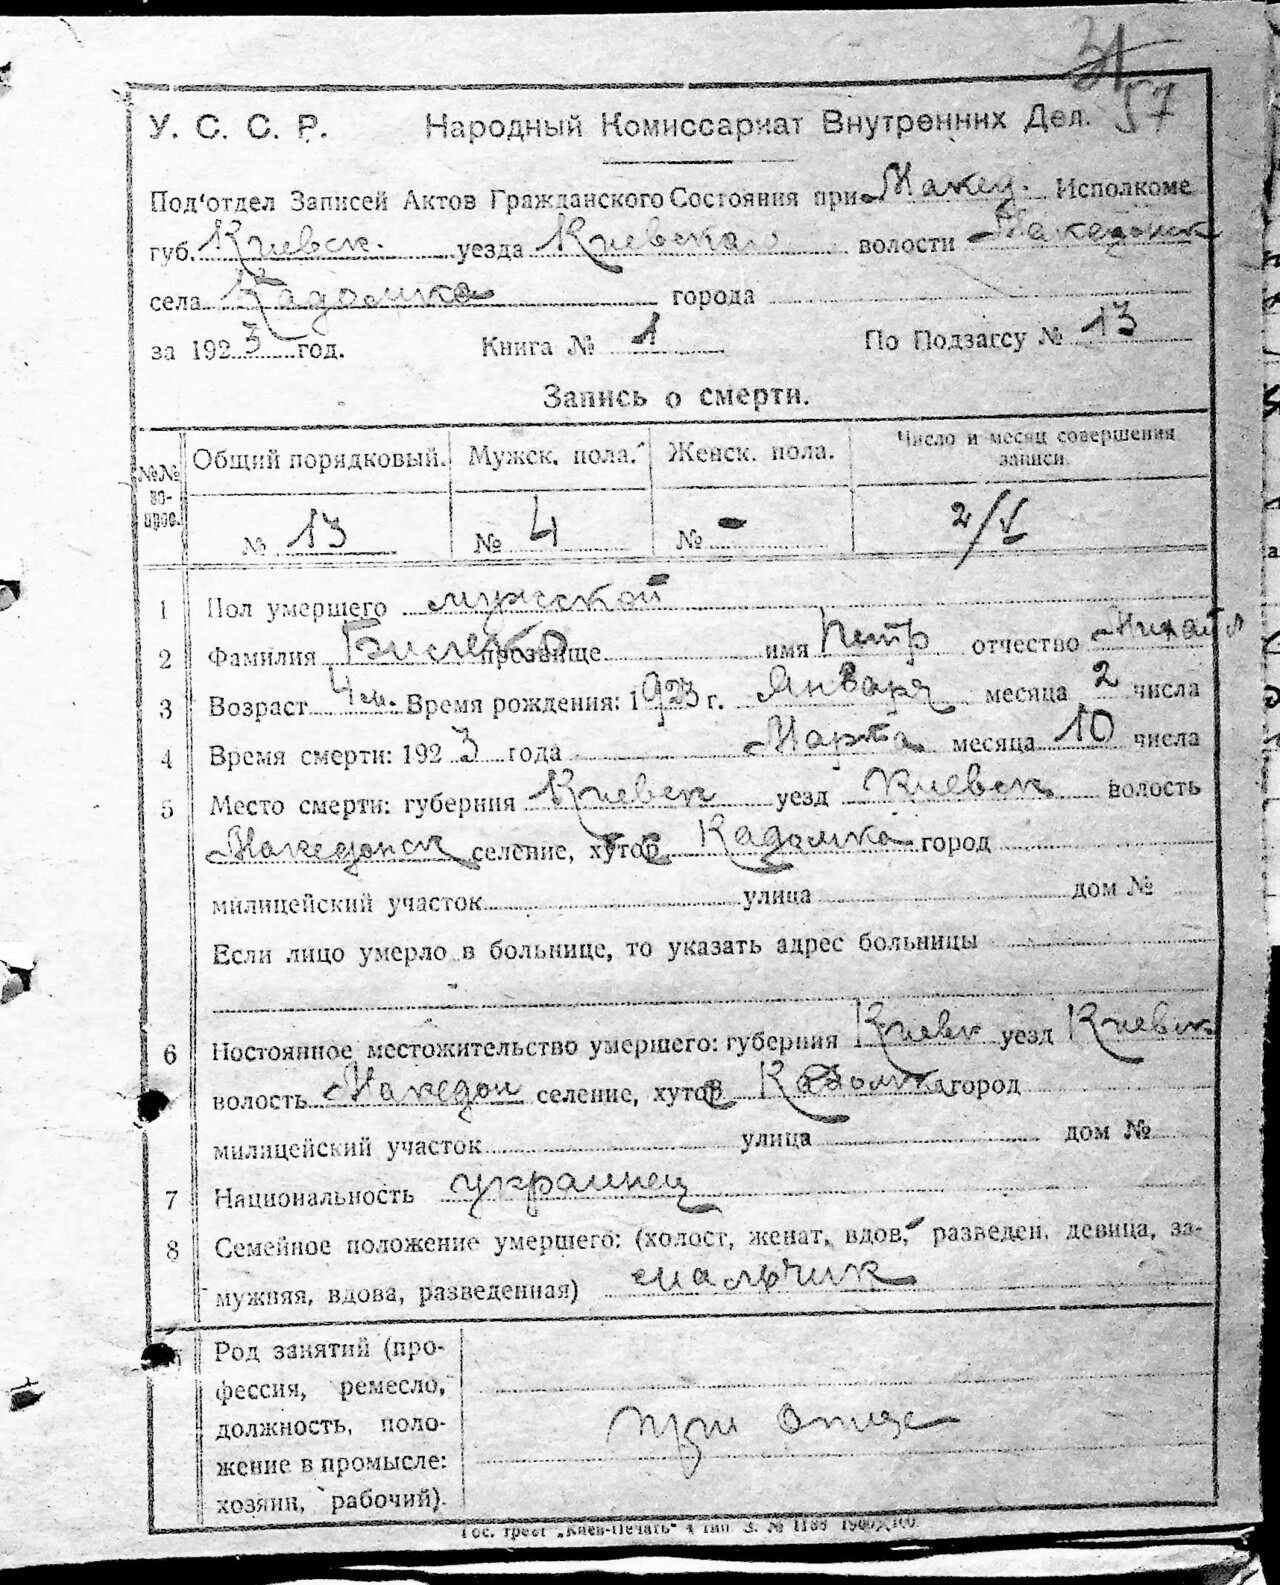 31
57
У. С. С. Р. Народный Комиссариат Внутренних Дел.
Под'отдел Записей Актов Гражданского Состояния при Макед. Исполкоме
губ. Киевск. уезда Киевскаго волости Македонск
села Кадомка города
за 1923 год. Книга № 1 По Подзагсу № 13
Запись о смерти.
№№ во-прос. Общий порядковый. Мужск. пола. Женск. пола. Число и месяц совершения записи.
№ 13 № 4 № - 2/V
1 Пол умершего мужской
2 Фамилия прозвище имя Петр отчество Михайл
3 Возраст 4 м. Время рождения: 1923 г. Января месяца 2 числа
4 Время смерти: 1923 года Марта месяца 10 числа
5 Место смерти: губерния Киевск уезд Киевск волость
Македонск селение, хутор Кадомка город
милицейский участок улица дом №
Если лицо умерло в больнице, то указать адрес больницы
6 Постоянное местожительство умершего: губерния Киевк уезд Киевск
волость Македон селение, хутор Кадомка город
милицейский участок улица дом №
7 Национальность украинец
8 Семейное положение умершего: (холост, женат, вдов, разведен, девица, за-
мужняя, вдова, разведенная) мальчик
Род занятий (про-
фессия, ремесло,
должность, поло- при отце
жение в промысле:
хозяин, рабочий).
Гос. трест „Киев-Печать" 4 тип. З. № 1188 1900×100